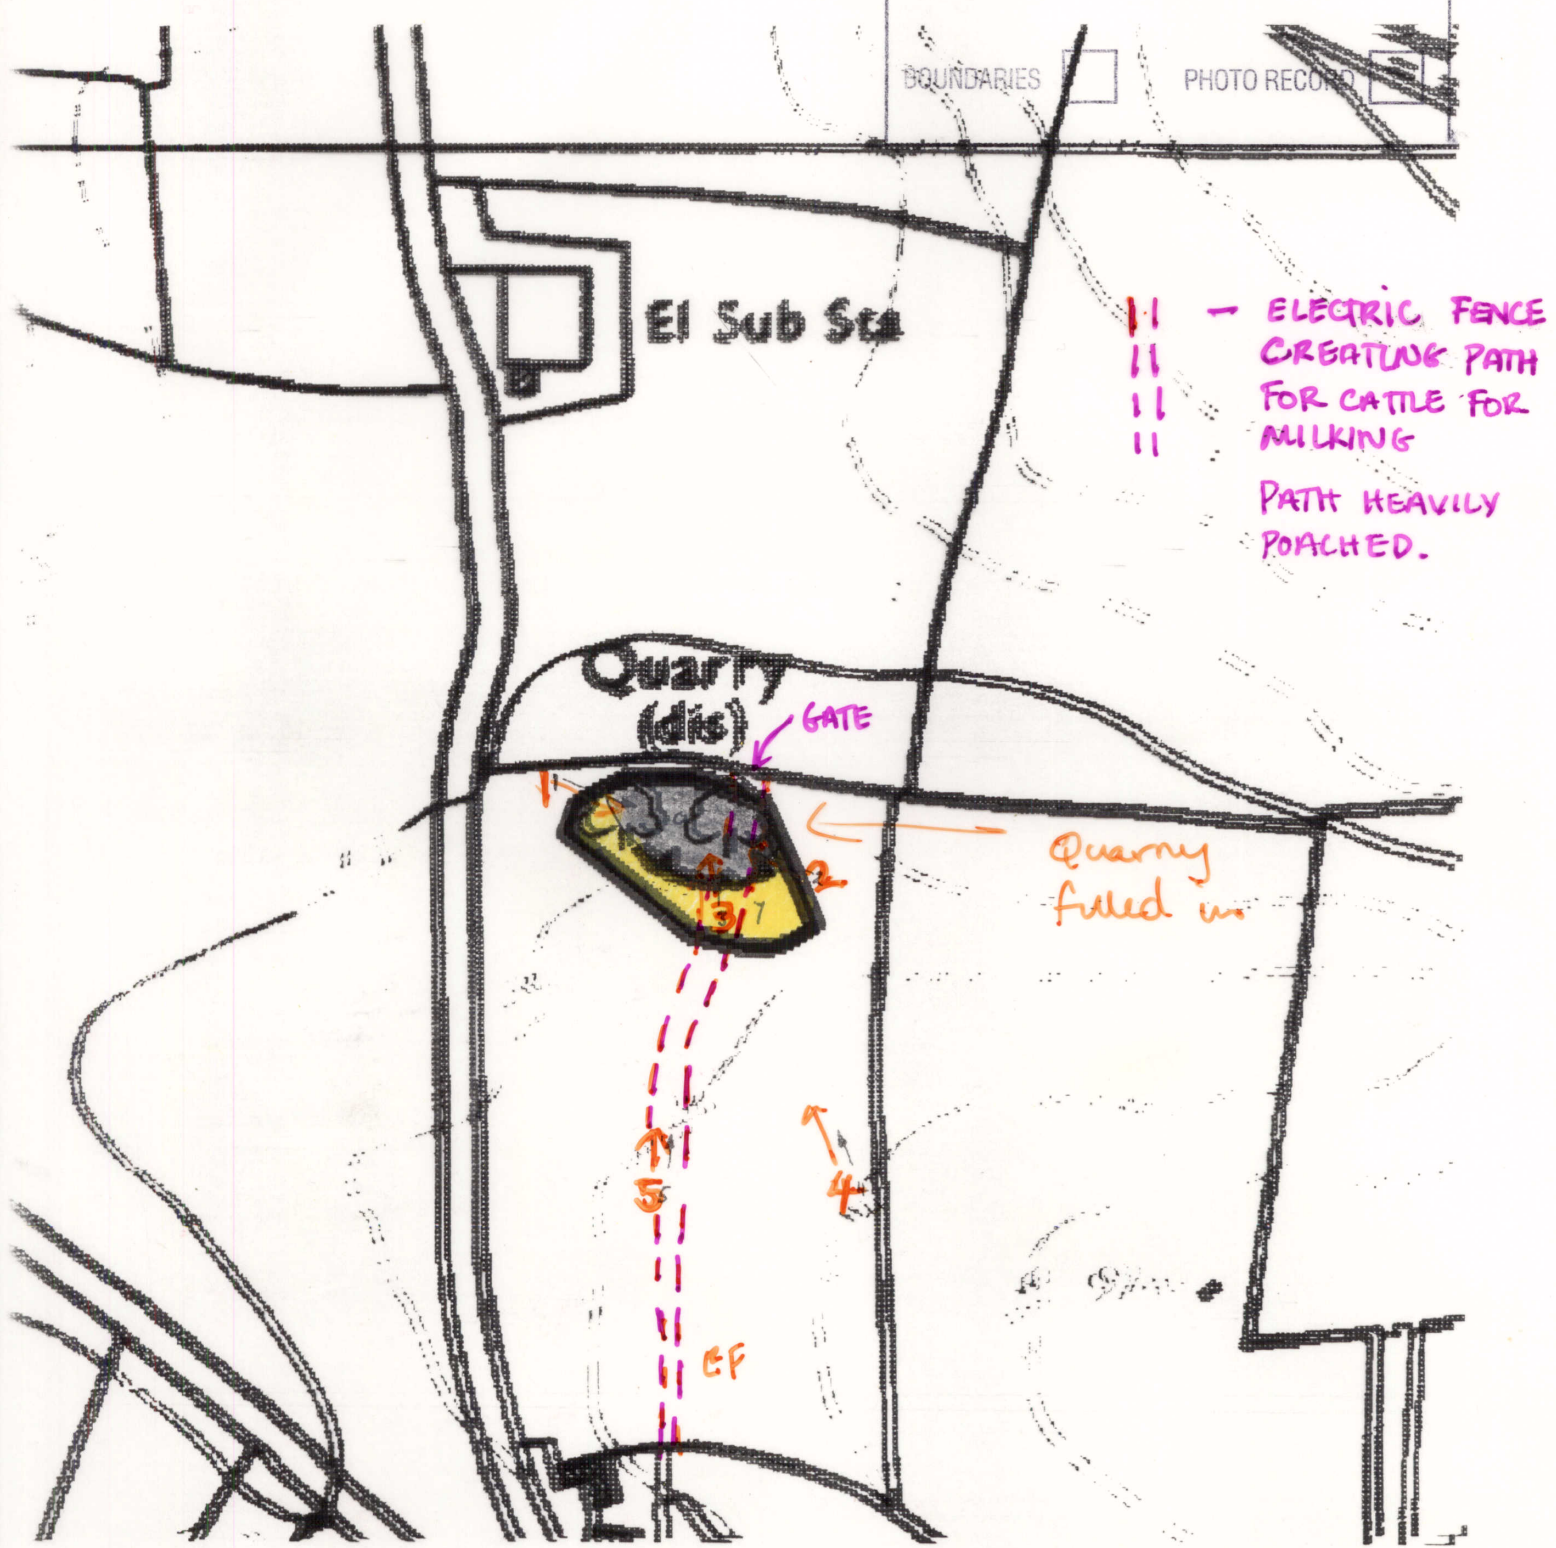 BOUNDARIES
PHOTO RECORD
El Sub Sta
— ELECTRIC FENCE
CREATING PATH
FOR CATTLE FOR
MILKING
PATH HEAVILY
POACHED.
Quarry
(dis)
GATE
1
2
3
7
Quarry
filled in
5
4
EF